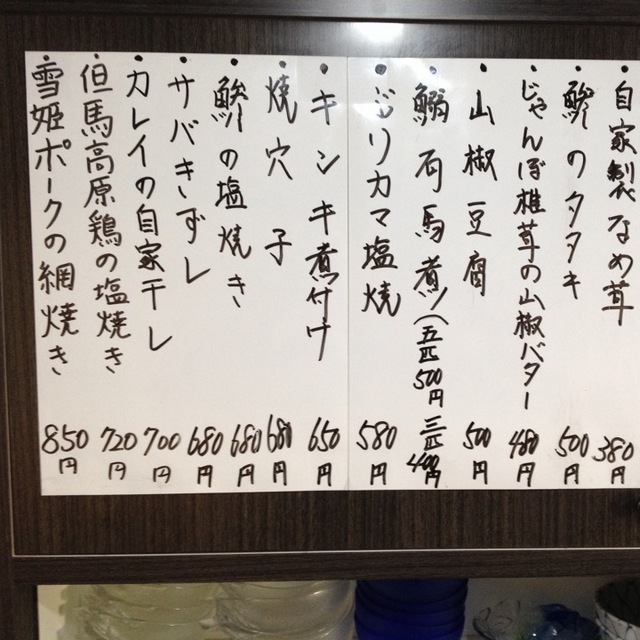 自家製なめ茸 380円
鯵のタタキ 500円
・じゃんぼ椎茸の山椒バター 480円
・山椒豆腐 500円
・鰯有馬煮(五匹500円 三匹400円
・ぶりカマ塩焼 580円
・キンキ煮付け 650円
・焼穴子 680円
・鯵の塩焼き 680円
・サバきずし 680円
・カレイの自家干し 700円
・但馬高原鶏の塩焼き 720円
・雪姫ポークの網焼き 850円